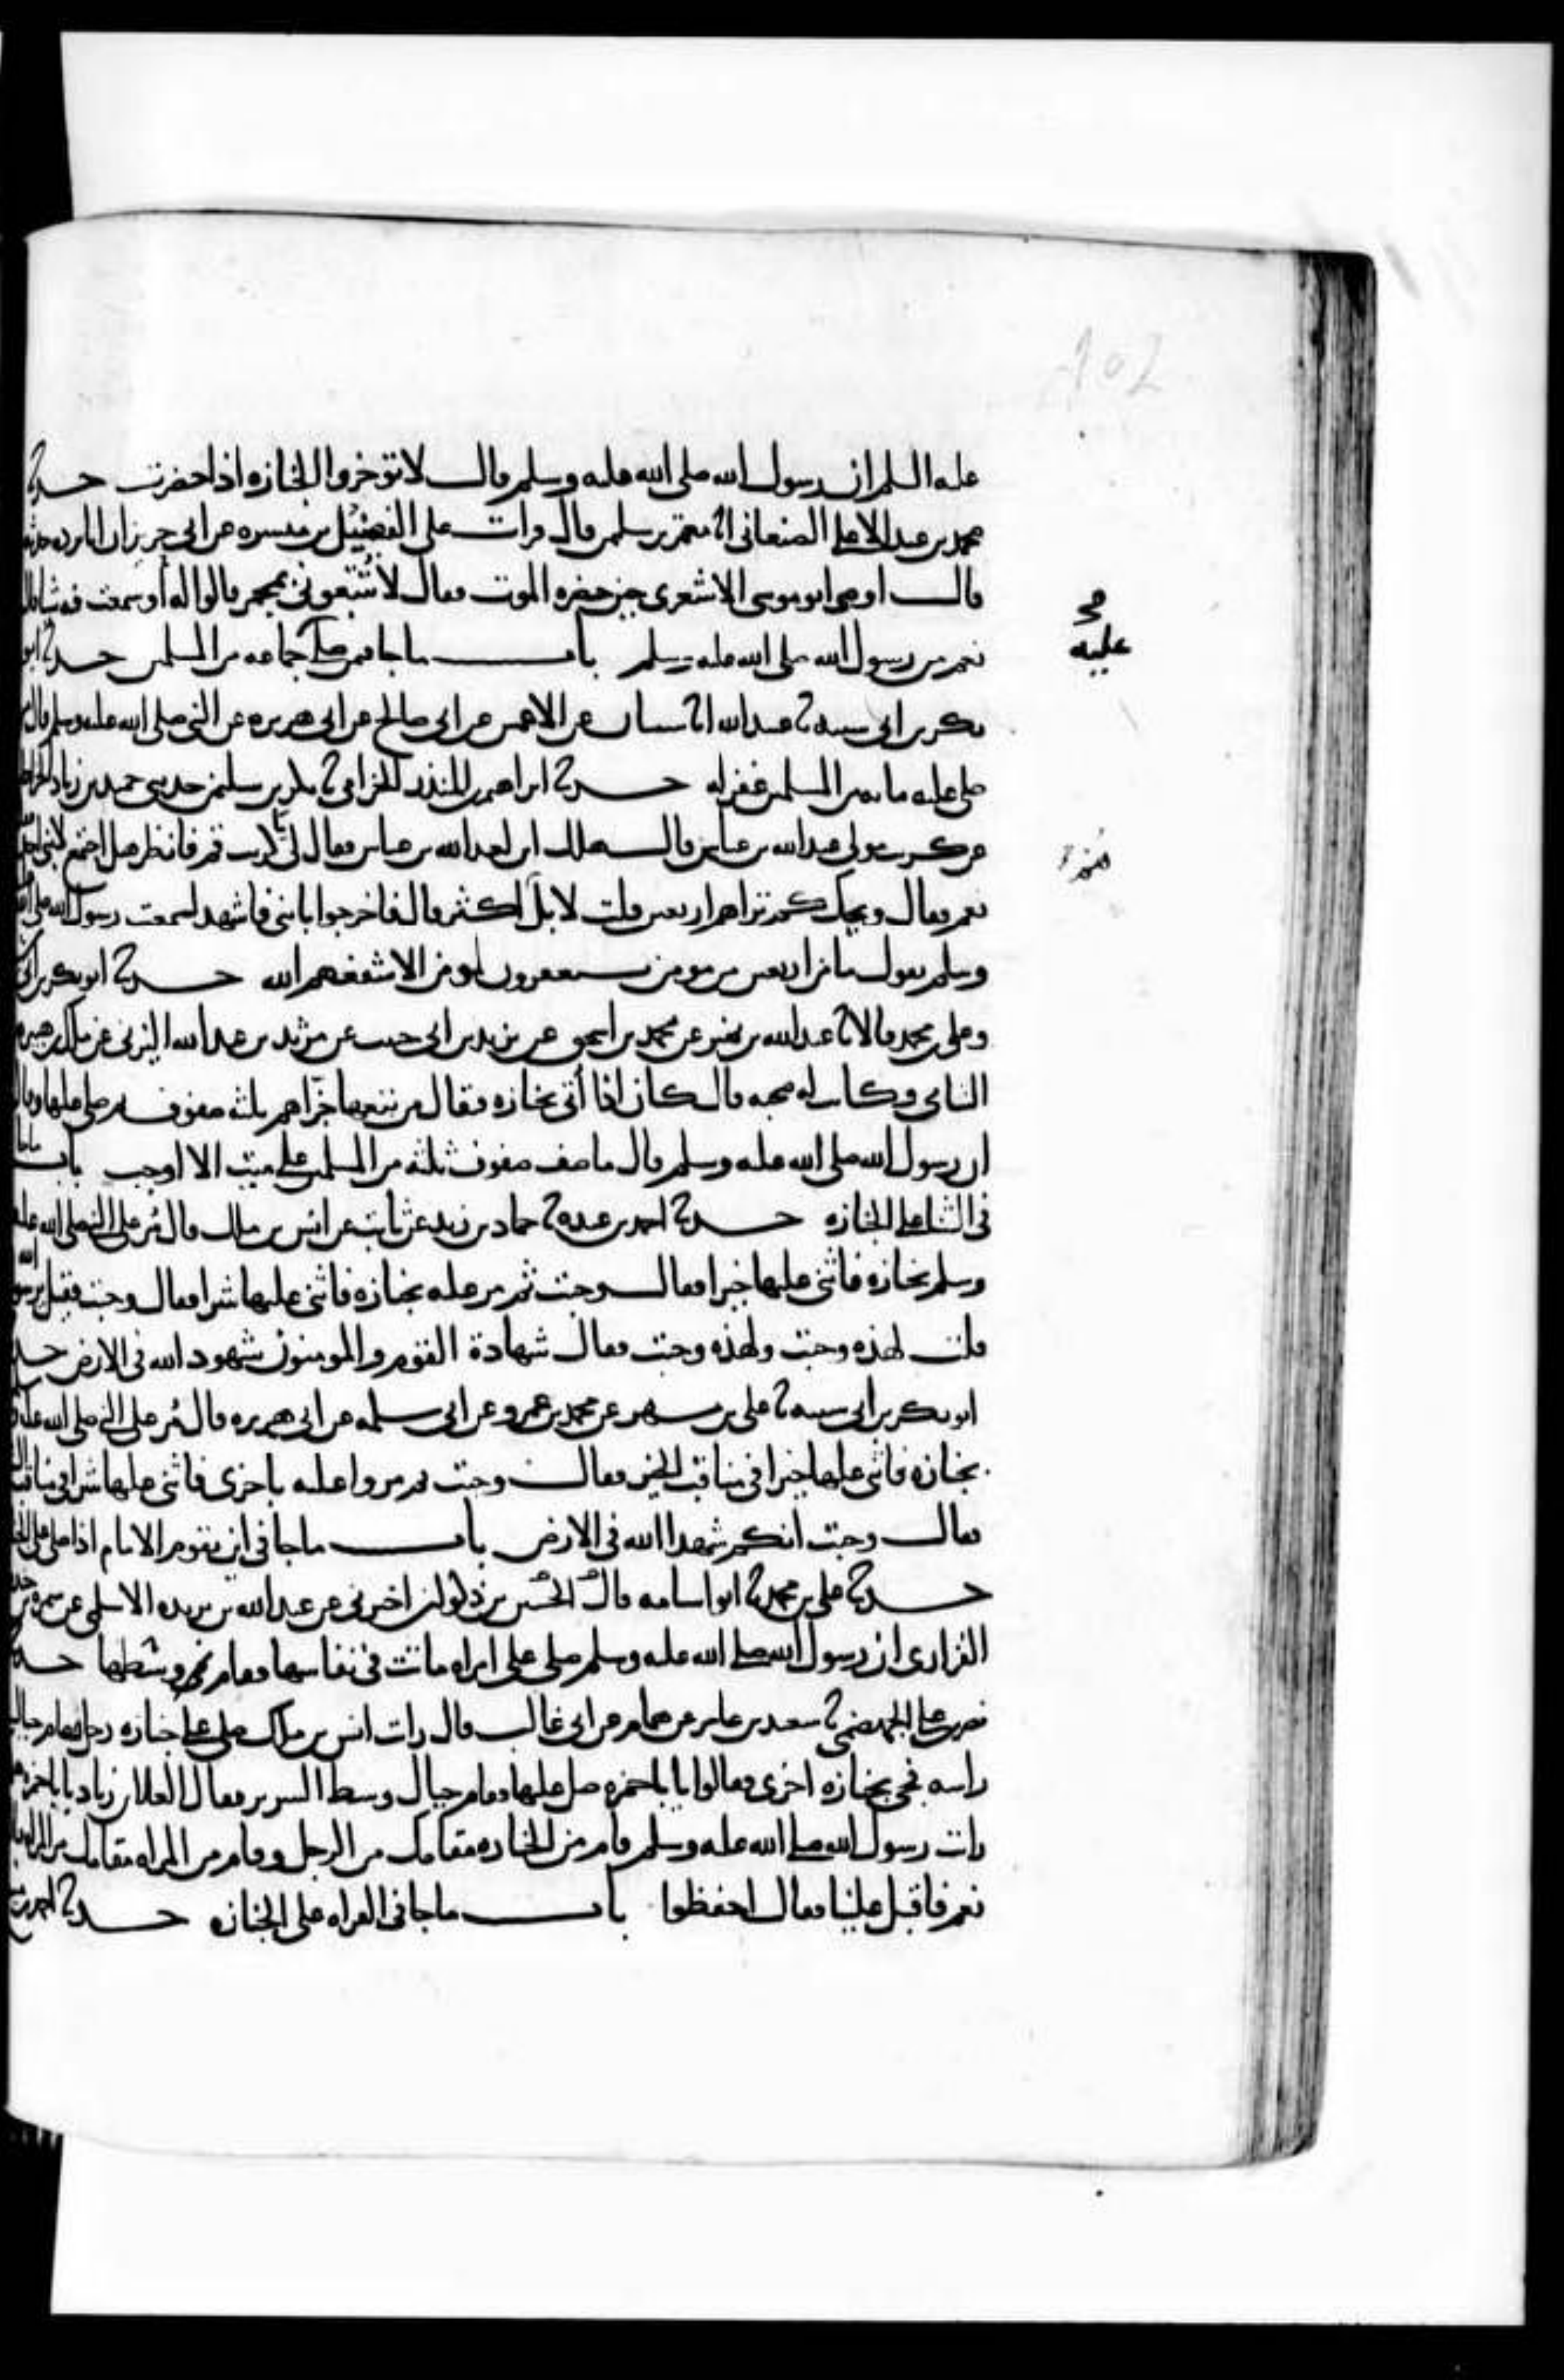 102
عليه السلم ان رسول الله صلى الله عليه وسلم قال لا توخروا الجنازه اذا حضرت حدثنا
محمد بن عبد الاعلى الصنعانى انا معتمر بن سليمن قال قرات على الفضيل بن ميسره عن ابى جرير ان ابا برده حدثه
قال اوصى ابو موسى الاشعرى حين حضره الموت فقال لا تتبعونى بمجمر قالوا له أو سمعت فيه شيا قال
نعم من رسول الله صلى الله عليه وسلم باب ما جا فيمن صلى جماعه من المسلمين حدثنا ابو
عليه
صح
بكر بن ابى شيبه نا عبيد الله انا شيبان عن الاعمش عن ابى صالح عن ابى هريره عن النبى صلى الله عليه وسلم قال من
صلى عليه مايه من المسلمين غفر له حدثنا ابراهيم بن المنذر الحزامى نا بكر بن سليمن حدثنى حميد بن زياد الخراط
عن كريب مولى عبد الله بن عباس قال هلك ابن لعبد الله بن عباس فقال لى يا كريب قم فانظر هل اجتمع لابنى احد
نعم فقال ويحك كم تراهم اربعين قلت لا بل اكثر قال فاخرجوا بابنى فاشهد لسمعت رسول الله صلى الله عليه
وسلم يقول ما من اربعين من مومن يستغفرون لمومن الا شفعهم الله حدثنا ابو بكر بن ابى
وعلى بن محمد قالا نا عبد الله بن نمير عن محمد بن اسحق عن يزيد بن ابى حبيب عن مرثد بن عبد الله اليزنى عن ملك بن هبيره
الشامى وكانت له صحبه قال كان اذا أتى بجنازه فتقال من تبعها جزاهم ثلثه صفوف ثم صلى عليها وقال
ان رسول الله صلى الله عليه وسلم قال ما صف صفوف ثلثه من المسلمين على ميت الا اوجب باب ما جا
فى الثنا على الجنازه حدثنا احمد بن عبده نا حماد بن زيد عن ثابت عن انس بن ملك قال مُر على النبى صلى الله عليه
وسلم بجنازه فاثنى عليها خيرا فقال وجبت ثم مر عليه بجنازه فاثنى عليها شرا فقال وجبت فقيل يرسول الله
قلت لهذه وجبت ولهذه وجبت فقال شهادة القوم والمومنون شهود الله فى الارض حدثنا
ابو بكر بن ابى شيبه نا على بن مسهر عن محمد بن عمرو عن ابى سلمه عن ابى هريره قال مُر على النبى صلى الله عليه
بجنازه فاثنى عليها خيرا فى مناقب الخير فقال وجبت ثم مروا عليه باخرى فاثنى عليها شرا فى مناقب
فقال وجبت انكم شهدا الله فى الارض باب ما جا فى اين يقوم الامام اذا صلى على
حدثنا على بن محمد نا ابو اسامه قال الحسين بن ذكوان اخبرنى عن عبد الله بن بريده الاسلمى عن سمره بن جندب
الفزارى ان رسول الله صلى الله عليه وسلم صلى على امراه ماتت فى نفاسها فقام وسطها حدثنا
نصر بن على الجهضمى نا سعيد بن عامر عن همام عن ابى غالب قال رايت انس بن ملك صلى على جنازه رجل فقام حيال
راسه فجى بجنازه اخرى فقالوا يا باحمزه صل عليها فقام حيال وسط السرير فقال العلا بن زياد يا باحمزه
رايت رسول الله صلى الله عليه وسلم قام من الجنازه مقامك من الرجل وقام من المراه مقامك من المراه قال
نعم فاقبل علينا فقال احفظوا باب ما جا فى القراه على الجنازه حدثنا احمد بن